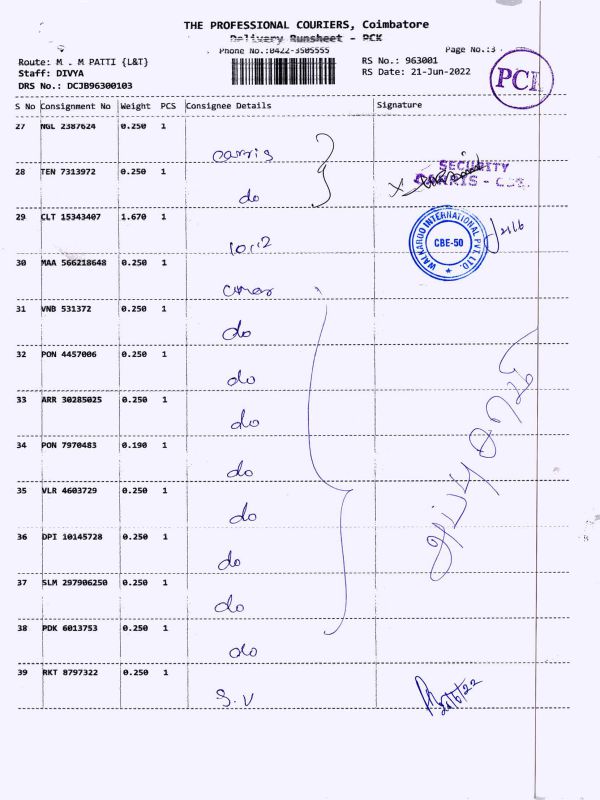 THE PROFESSIONAL COURIERS, Coimbatore
Delivery Runsheet - PCK
Phone No.:0422-3505555 Page No.:3
Route: M . M PATTI {L&T} RS No.: 963001
Staff: DIVYA RS Date: 21-Jun-2022
DRS No.: DCJB96300103
PCI
S No Consignment No Weight PCS Consignee Details Signature
27 NGL 2387624 0.250 1
28 TEN 7313972 0.250 1
SECURITY
do
29 CLT 15343407 1.670 1
WALKAROO INTERNATIONAL PVT. LTD.
CBE-50
21/6
30 MAA 566218648 0.250 1
31 VNB 531372 0.250 1
do
32 PON 4457006 0.250 1
do
33 ARR 30285025 0.250 1
do
34 PON 7970483 0.190 1
do
35 VLR 4603729 0.250 1
do
36 DPI 10145728 0.250 1
do
37 SLM 297906250 0.250 1
do
38 PDK 6013753 0.250 1
do
39 RKT 8797322 0.250 1
S.V